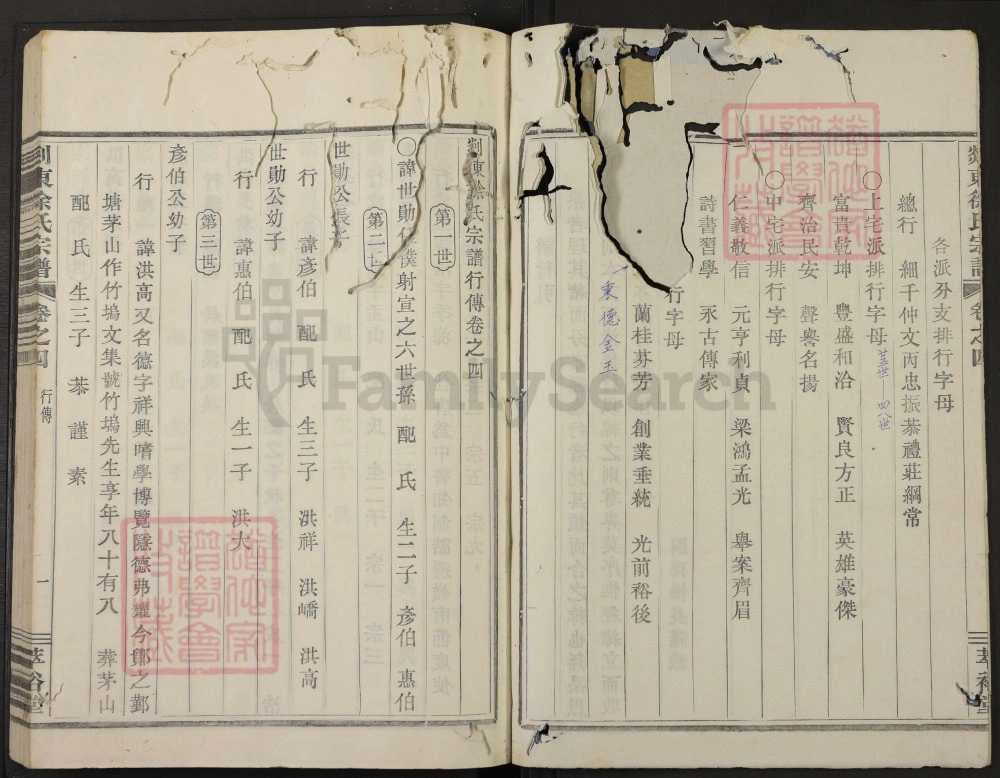 各派分支排行字母
總行 細千仲文丙忠振恭禮莊綱常
○上宅派排行字母
富貴乾坤 豐盛和洽 賢良方正 英雄豪傑
齊治民安 聲譽名揚
○中宅派排行字母
仁義敬信 元亨利貞 梁鴻孟光 舉案齊眉
詩書習學 永古傳家
行字母
蘭桂芬芳 創業垂統 光前裕後
東德金玉
剡東徐氏宗譜 卷之四
萃裕堂
剡東徐氏宗譜行傳卷之四
第一世
○諱世勛 僕射宣之六世孫 配 氏 生二子 彥伯 惠伯
第二世
世勛公長子
行 諱彥伯 配 氏 生三子 洪祥 洪嶠 洪高
世勛公幼子
行 諱惠伯 配 氏 生一子 洪大
第三世
彥伯公幼子
行 諱洪高又名德字祥興嗜學博覽隱德弗耀今鄞之鄞
塘茅山作竹塢文集號竹塢先生享年八十有八 葬茅山
配 氏 生三子 恭 謹 素
剡東徐氏宗譜 卷之四 行傳 一 萃裕堂
FamilySearch